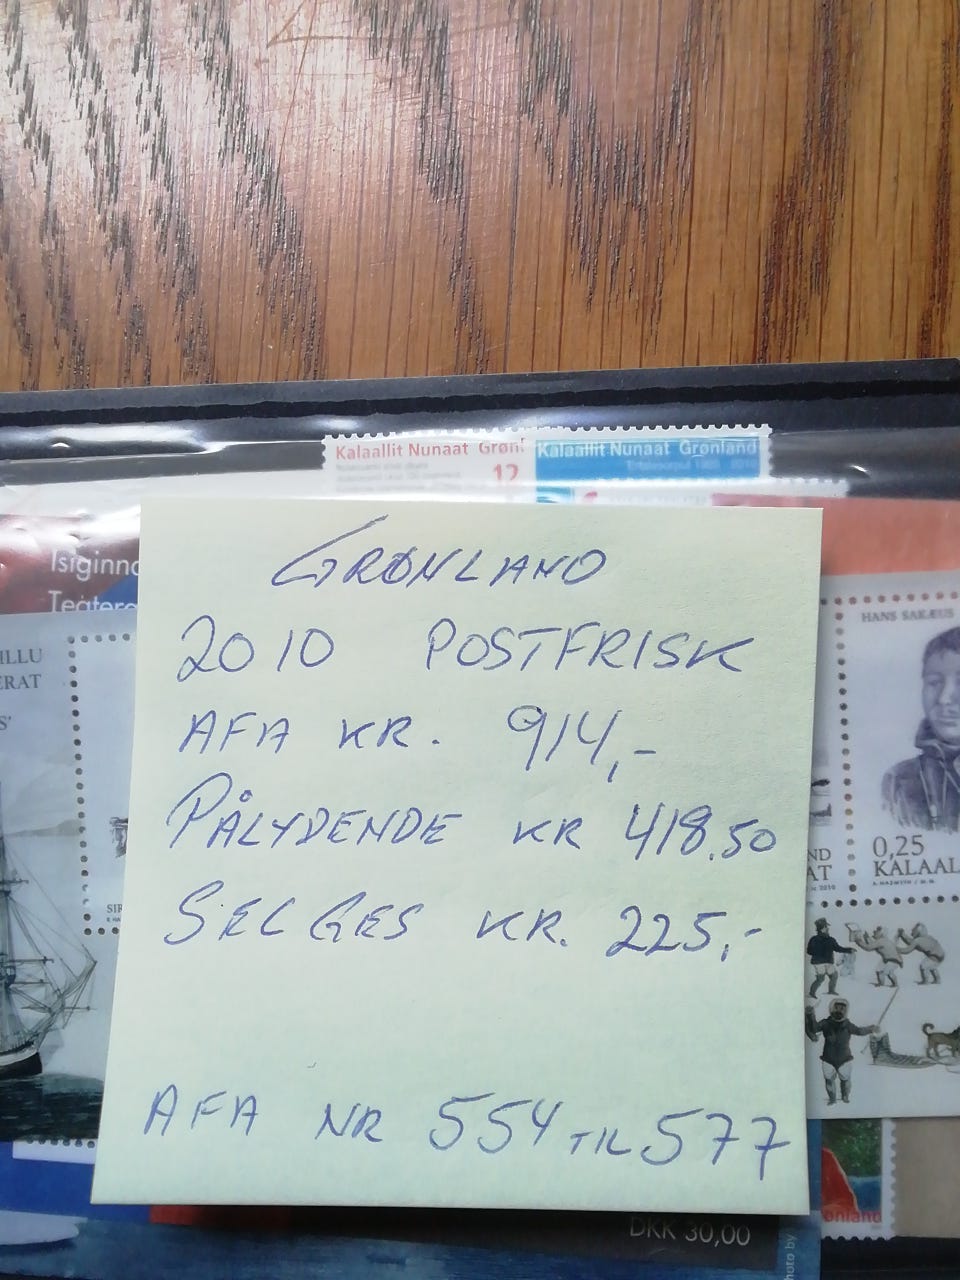 Kalaallit Nunaat Grønl
12
Kalaallit Nunaat Grønland
Isiginna
Teatere
ILLU
ERAT
HANS SAKÆUS
GRØNLAND
2010 POSTFRISK
AFA KR. 914,-
PÅLYDENDE KR 418.50
SELGES KR. 225,-
AFA NR 554 TIL 577
0,25
KALAAL
ND
AT
2010
SIR
ønland
DKK 30,00
oto by